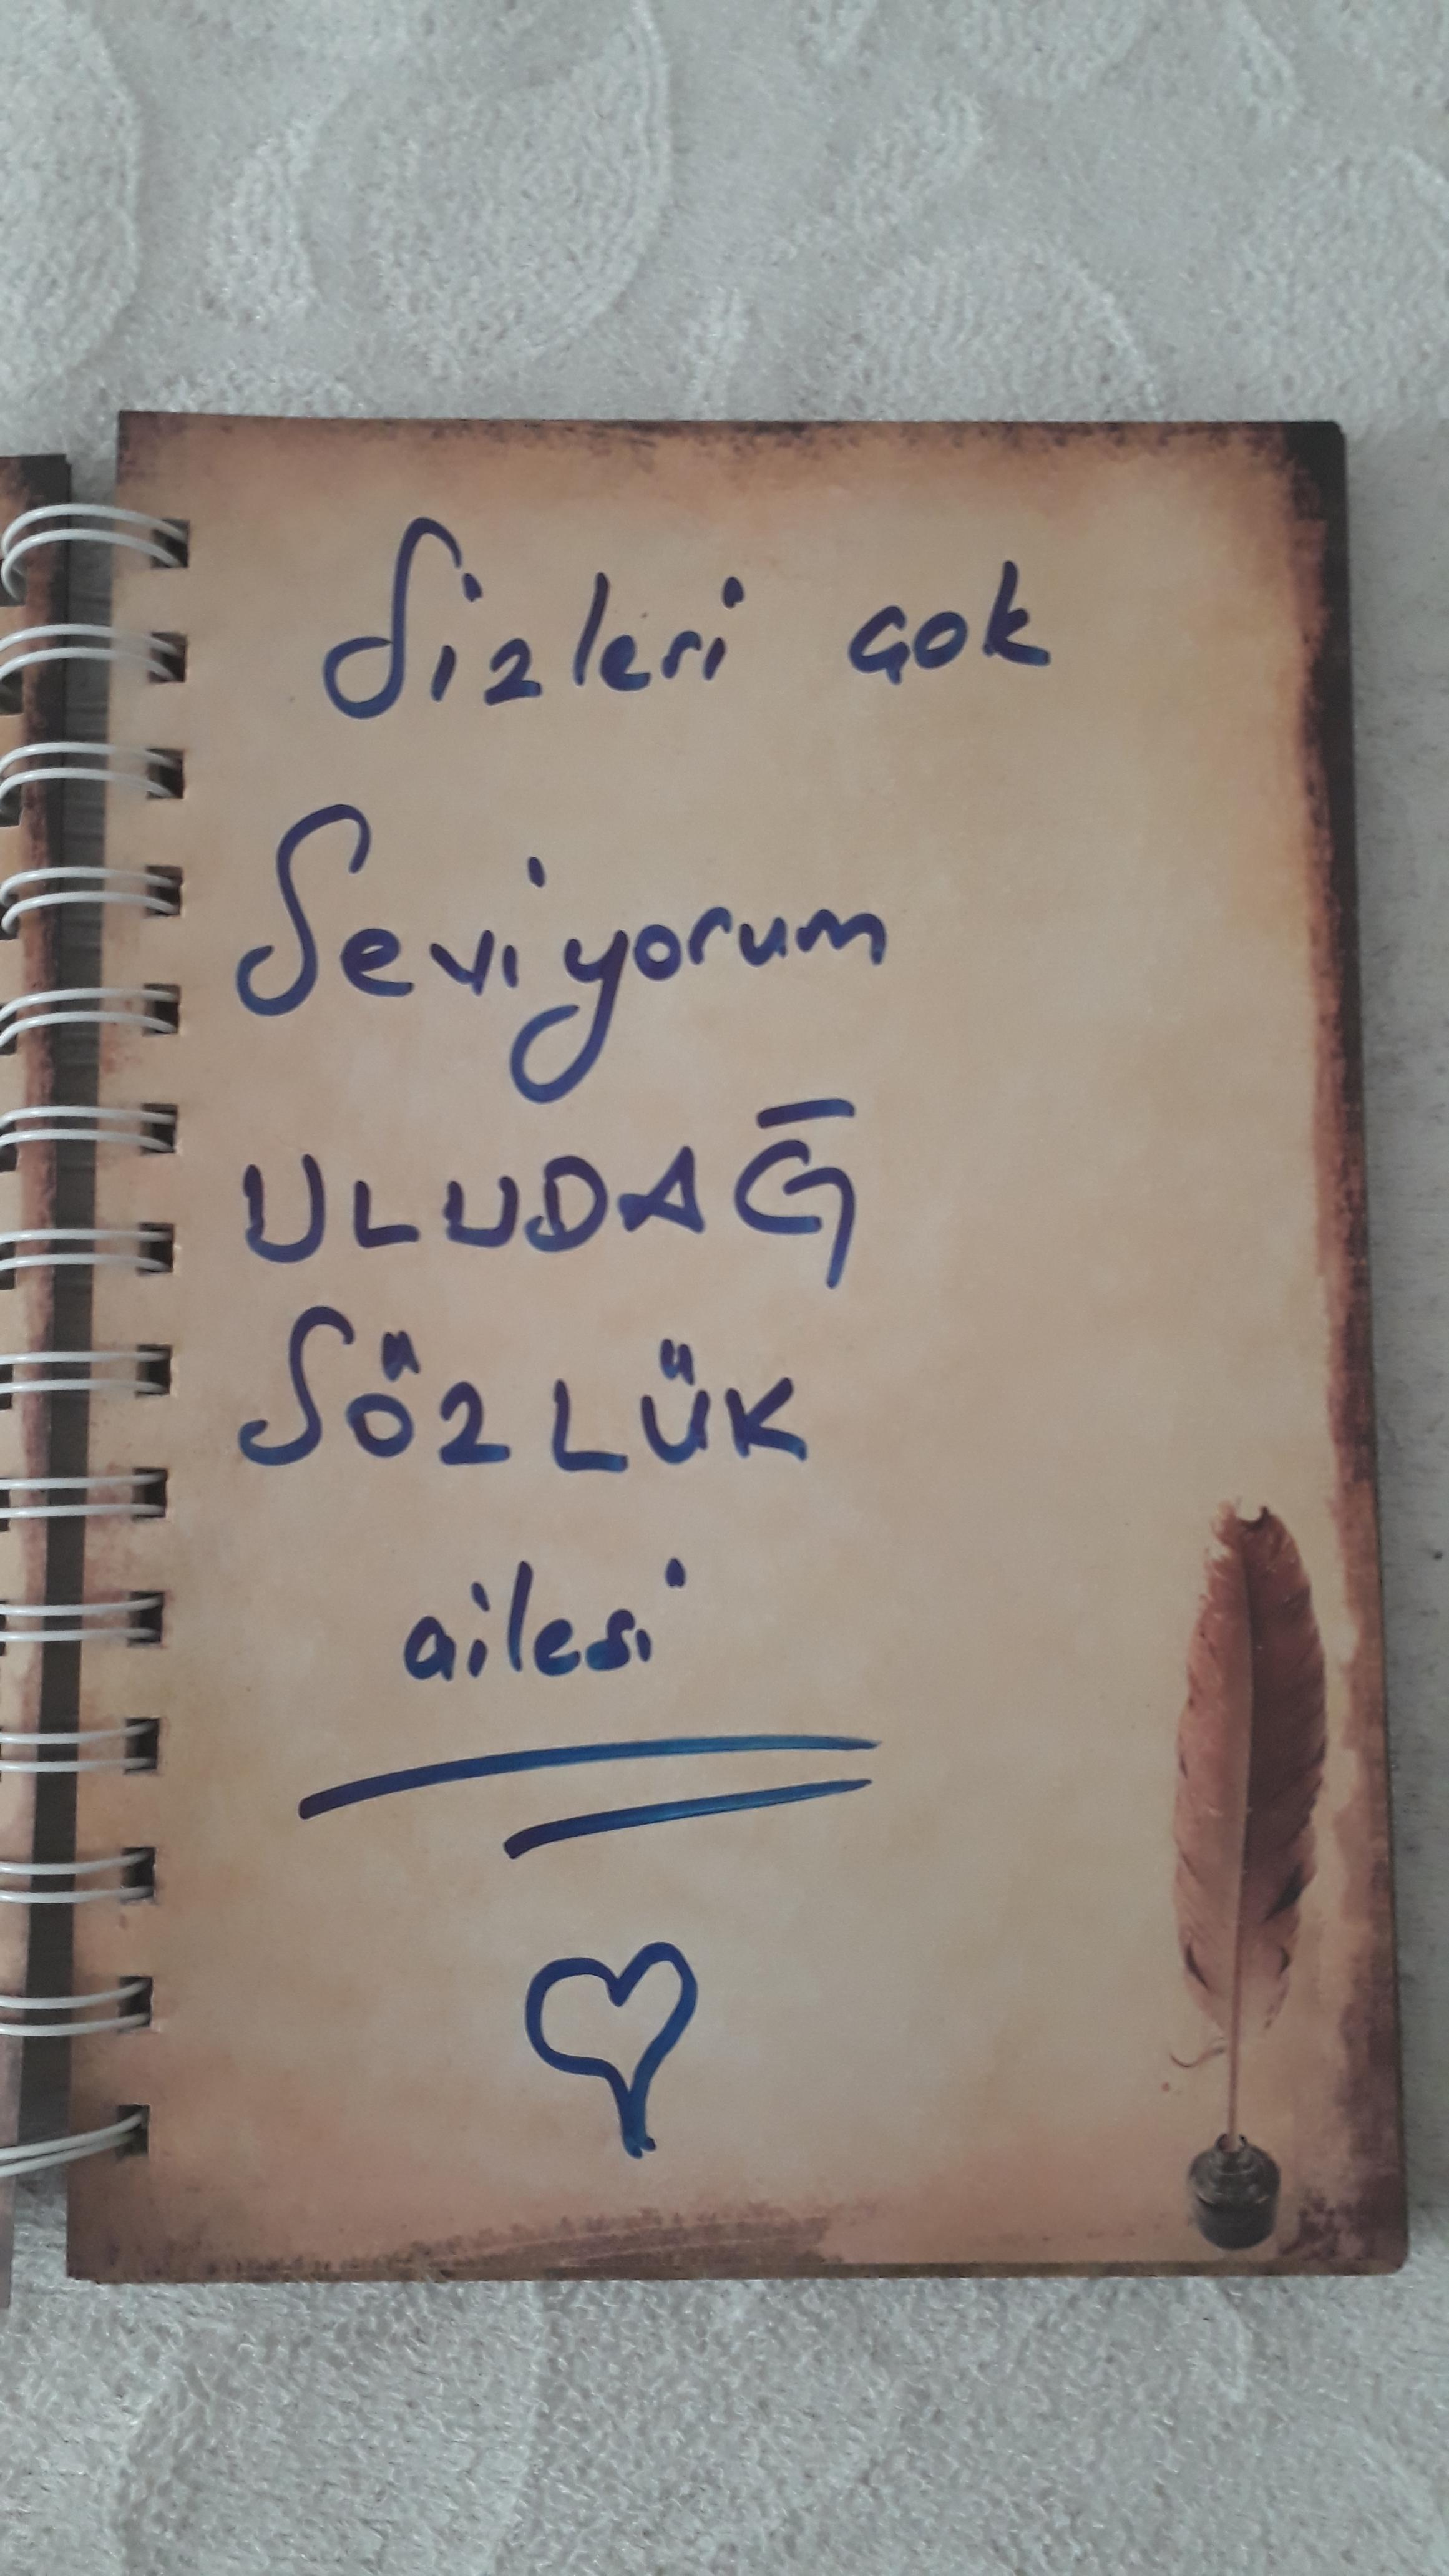 Sizleri çok
Seviyorum
ULUDAĞ
SÖZLÜK
ailesi